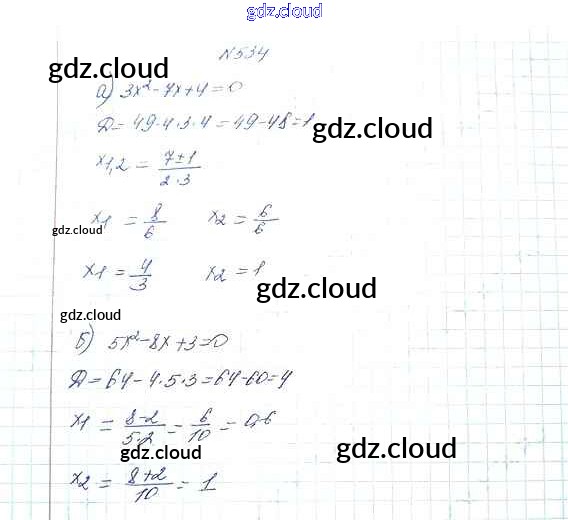 gdz.cloud
N534
gdz.cloud
а) 3x²-7x+4=0
Д=49-4·3·4=49-48=1
gdz.cloud
x1,2 = 7±1 / 2·3
x1 = 8/6 x2 = 6/6
gdz.cloud
x1 = 4/3 x2 = 1
gdz.cloud
gdz.cloud
б) 5x²-8x+3=0
Д=64-4·5·3=64-60=4
x1 = 8-2 / 5·2 = 6/10 = 0,6
gdz.cloud
gdz.cloud
x2 = 8+2 / 10 = 1